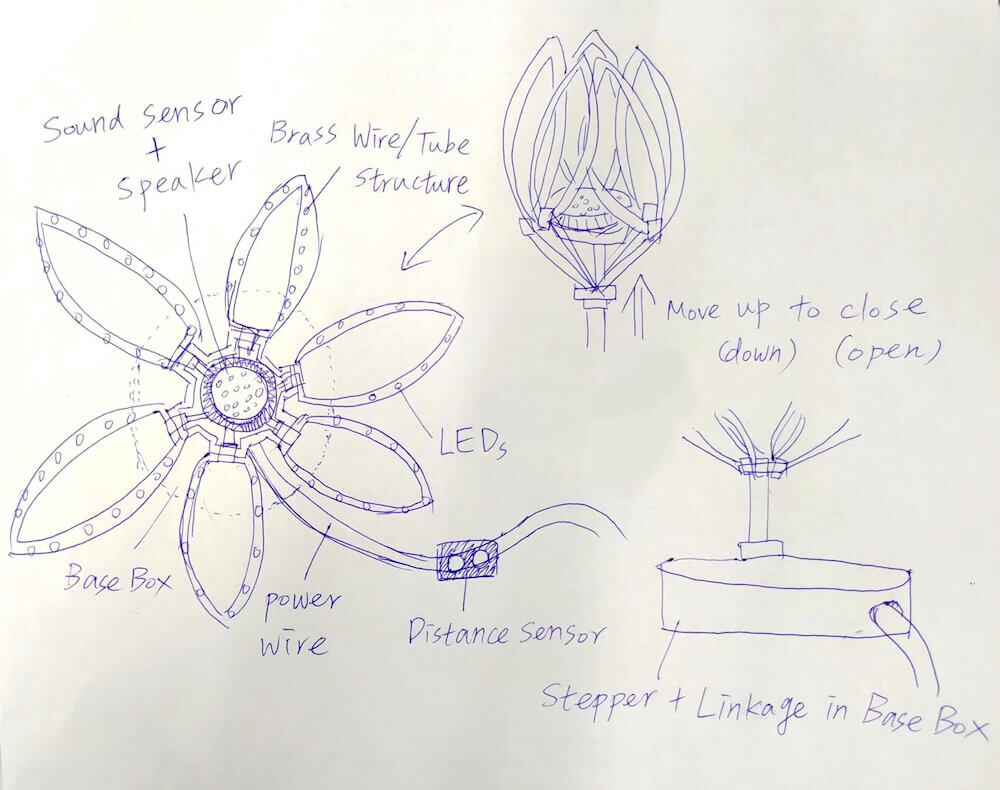 Sound sensor
+
Speaker
Brass Wire/Tube
Structure
Move up to close
(down) (open)
LEDs
Base Box
power
wire
Distance Sensor
Stepper + Linkage in Base Box